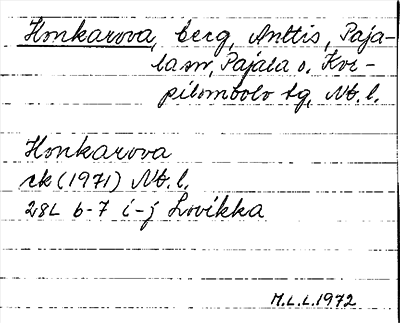 Honkarova, berg, Anttis, Paja-
la sn, Pajala o. Kor-
pilombolo tg, Nb. l.
Honkarova
rk (1971) Nb. l.
28L 6-7 i-j Lovikka
M.L.L. 1972